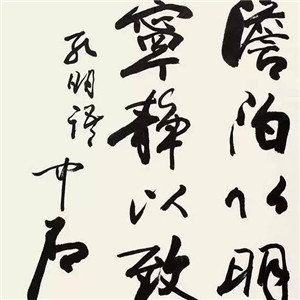 澹泊以明
寧静以致
孔明語
中石